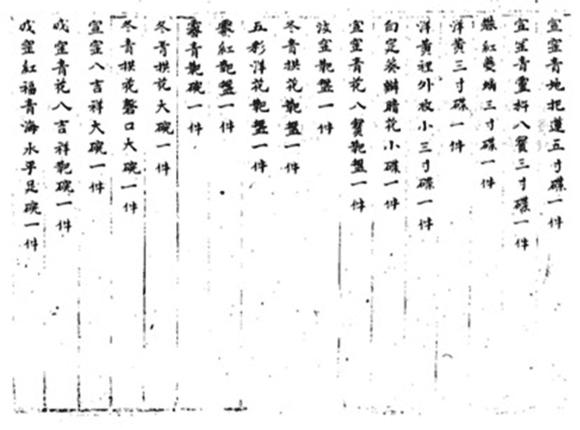 宣窰青地把蓮五寸碟一件
宣窰青靈杵八寶三寸碟一件
紅夔螭三寸碟一件
洋黃三寸碟一件
洋黃裡外放小三寸碟一件
白定葵瓣暗花小碟一件
宣窰青花八寶靶盤一件
汝窰靶盤一件
冬青拱花靶盤一件
五彩洋花靶盤一件
霽紅靶盤一件
霽青靶碗一件
冬青拱花大碗一件
冬青拱花磬口大碗一件
宣窰八吉祥大碗一件
成窰青花八吉祥靶碗一件
成窰紅福青海水平足碗一件